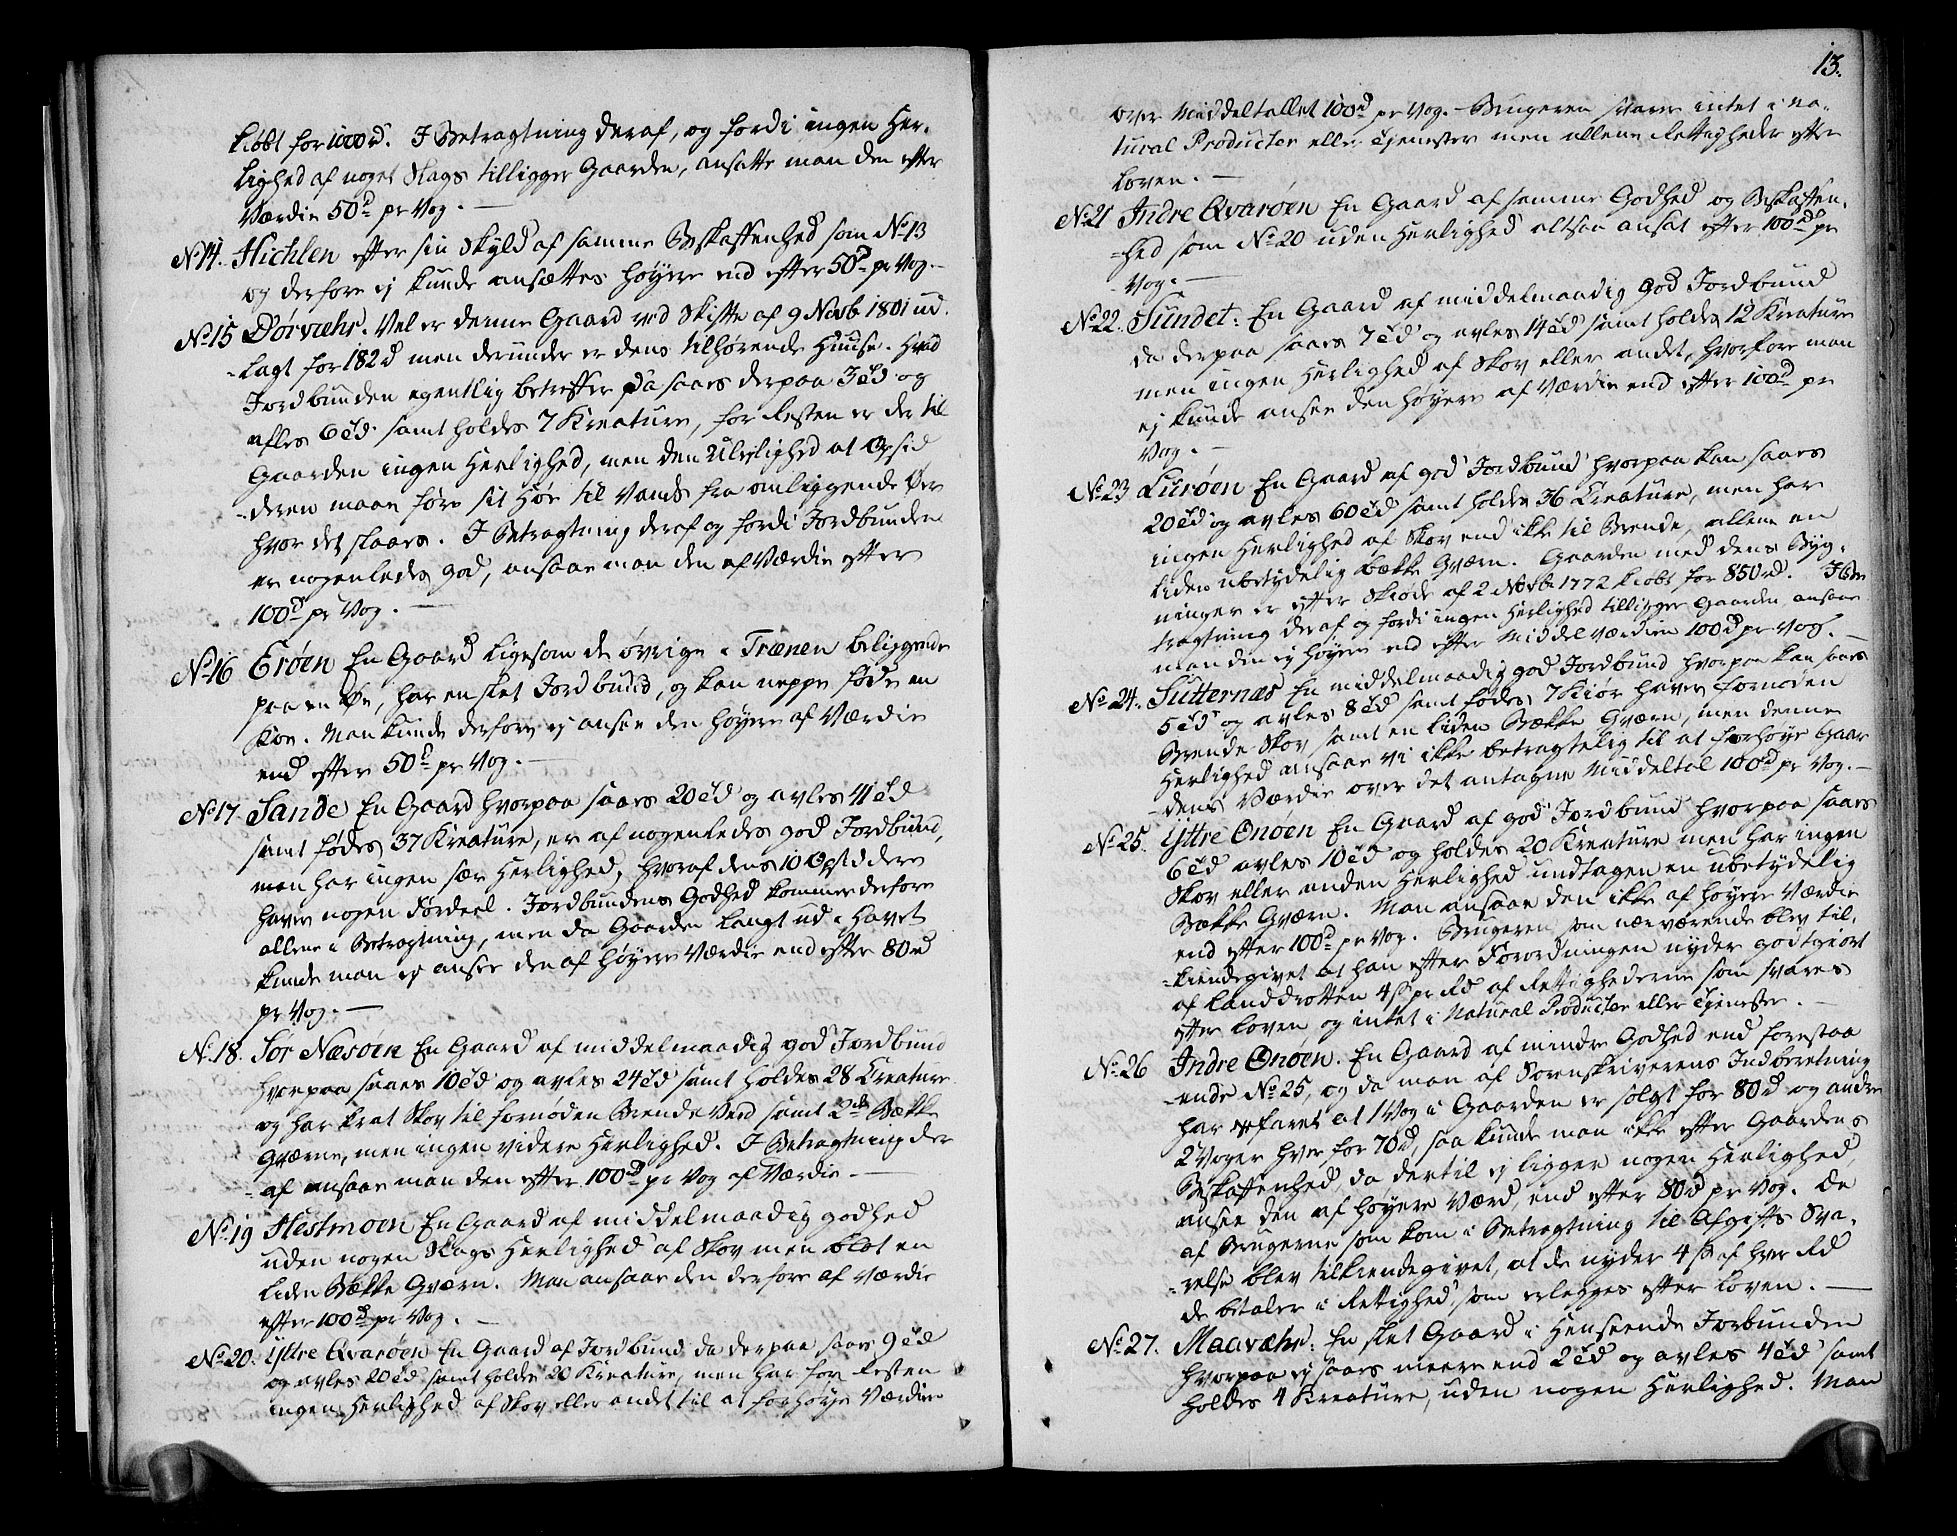 kiøbt for 1000 rd. I Betragtning deraf, og fordi ingen Her-
lighed af noget Slags tilligger Gaarden, ansatte man den efter
Værdie 50 rd pr Vog. —
No 14. Hichlen efter sin Skyld af samme Beskaffenhed som No 13
og derfore ej kunde ansættes høyere end efter 50 rd pr Vog. —
No 15 Dørvæhr. Vel er denne Gaard ved Skifte af 9 Novb 1801 ud-
lagt for 182 d men derunder er dens tilhørende Huuse. Hvad
Jordbunden egentlig betreffer da saaes derpaa 3 td og
afles 6 td samt holdes 7 Kreature, for Resten er der til
Gaarden ingen Herlighed, men den Uleilighed at Opsid
deren maae føre sit Høe til Vands fra omliggende Øer
hvor det slaaes. I Betragtning deraf og fordi Jordbunden
er nogenledes god, ansaae man den af Værdie efter
100 d pr Vog. —
No 16 Erøen En Gaard ligesom de øvrige i Trænen beliggende
paa en Øe, har en slet Jordbund, og kan neppe føde en
Koe. Man kunde derfore ej ansee den høyere af Værdie
end efter 50 d pr Vog. —
No 17. Sande En Gaard hvorpaa saaes 20 td og avles 41 td
samt fødes 37 Kreature, er af nogenledes god Jordbund,
men har ingen sær Herlighed, hvoraf dens 10 Opsiddere
haver nogen Fordeel. Jordbundens Godhed kommer derfore
allene i Betragtning, men da Gaarden langt ud i Havet
kunde man ej ansee den af høyere Værdie end efter 80 rd
pr Vog. —
No 18. Sør Næsøen En Gaard af middelmaadig god Jordbund
hvorpaa saaes 10 td og avles 24 td samt holdes 28 Creature
og har krat Skov til fornøden Brende Ved samt 2de Bække
Qværne, men ingen videre Herlighed. I Betragtning der
af ansaae man den efter 100 d pr Vog af Værdie —
No 19 Hestmoen En Gaard af middelmaadig godhed
uden nogen Slags Herlighed af Skov men blot en
liden Bække Qværn. Man ansaae den derfore af Værdie
efter 100 d pr Vog. —
No 20. Yttre Qvarøen En Gaard af Jordbund da derpaa saaes 9 td
og avles 20 td samt holdes 20 Kreature, men har for Resten
ingen Herlighed af Skov eller andet til at forhøye Værdien
13.
over Middeltallet 100 d pr Vog. — Brugeren svarer intet i na-
tural Producter eller Tjenester men allene Rettigheder efter
Loven. —
No 21 Indre Qvarøen En Gaard af samme Godhed og Beskaffen-
hed som No 20 uden Herlighed altsaa ansat efter 100 d pr
Vog. —
No 22. Sundet: En Gaard af middelmaadig god Jordbund
da derpaa saaes 7 td og avles 14 td samt holdes 12 Kreature
men ingen Herlighed af Skov eller andet, hvorfore man
ej kunde ansee den høyere af Værdie end efter 100 d pr
Vog. —
No 23 Lurøen En Gaard af god Jordbund hvorpaa kan saaes
20 td og avles 60 td samt holdes 36 Creature, men har
ingen Herlighed af Skov end ikke til Brende, allene en
liden ubetydelig Bække Qværn. Gaarden med dens Byg-
ninger er efter Skiøde af 2 Novbr 1772 kiøbt for 850 rd. I Be
tragtning deraf og fordi ingen Herlighed tilligger Gaarden, ansaae
man den ej høyere end efter Middelværdien 100 d pr Vog. —
No 24. Sutternæs En middelmaadig god Jordbund hvorpaa kan saaes
5 td og avles 8 td samt fødes 7 Kiør haver fornøden
Brende Skov, samt en liden Bække Qværn, men denne
Herlighed ansaae vi ikke betragtelig til at forhøye Gaar
dens Værdie over det antagne Middeltal 100 d pr Vog. —
No 25. Yttre Onøen En Gaard af god Jordbund hvorpaa saaes
6 td avles 10 td og holdes 20 Kreature men har ingen
Skov eller anden Herlighed undtagen en ubetydelig
Bække Qværn. Man ansaae den ikke af høyere Værdie
end efter 100 d pr Vog. Brugeren som nærværende blev til-
kiendegivet at han efter Forordningen nyder godtgiort
af Landdrotten 4 s pr Rd af Rettighederne som svares
efter Loven og intet i Natural Producter eller Tjenester. —
No 26 Indre Onøen. En Gaard af mindre Godhed end forestaa
ende No 25, og da man af Sorenskriverens Indberetning
har erfaret at 1 Vog i Gaarden er solgt for 80 d og andre
2 Voger hver for 70 d, saa kunde man ikke efter Gaardens
Beskaffenhed, da dertil ej ligger nogen Herlighed,
ansee den af høyere Værd, end efter 80 rd pr Vog. De
af Brugerne som kom i Betragtning til Afgifts Sva-
relse blev tilkiendegivet, at de nyder 4 s af hver Rd
de betaler i Rettighed, som erlegges efter Loven. —
No 27. Maavæhr: En slet Gaard i Henseende Jorbunden
hvorpaa ej saaes meere end 2 td og avles 4 td samt
holdes 4 Kreature, uden nogen Herlighed. Man